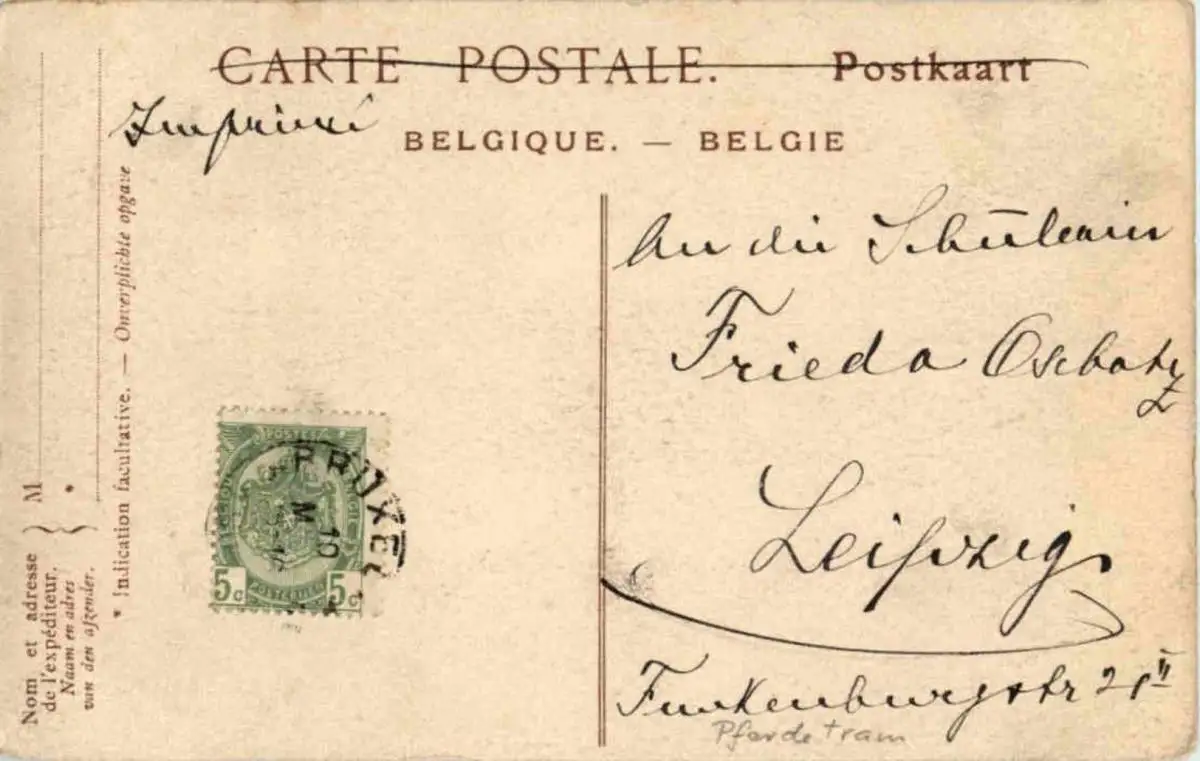 CARTE POSTALE. Postkaart
Imprimé
BELGIQUE. — BELGIE
An die Schülerin
Frieda Oschatz
Leipzig
Funkenburgstr
Pferdetram
POSTES
5c 5c
BRUXEL
10
M
Nom et adresse
de l'expéditeur.
Naam en adres
van den afzender.
} M
} *
* Indication facultative. — Onverplichte opgave